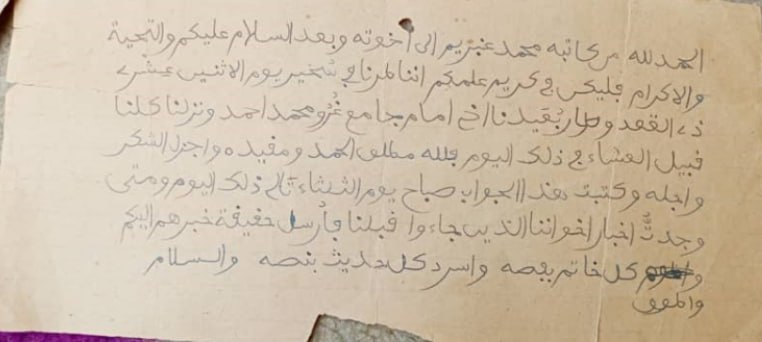 الحمد لله من كاتبه محمد عبزيم الى أخوته وبعد السلام عليكم والتحية
والاكرام فليكن في كريم علمكم اننا لمرنا في شخير يوم الاثنين عشر
ذي القعد وطار بقيدنا اخ امام جامع غزو محمد احمد ونزلنا كلنا
قبيل العشاء في ذلك اليوم فلله مطلق الحمد ومفيده واجزل الشكر
واجله وكتبت هذا الجواب صباح يوم الثلثاء تالي ذلك اليوم ومتى
وجدت اخبار اخواننا الذين جاءوا قبلنا فأرسل حقيقة خبرهم اليكم
كل خاتم بفصه واسرد كل حديث بنصه والسلام